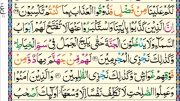 لَكُمْ عَلَيْنَا مِن فَضْلٍ فَذُوقُوا الْعَذَابَ بِمَا كُنتُمْ تَكْسِبُونَ
إِنَّ الَّذِينَ كَذَّبُوا بِآيَاتِنَا وَاسْتَكْبَرُوا عَنْهَا لَا تُفَتَّحُ لَهُمْ أَبْوَابُ
السَّمَاءِ وَلَا يَدْخُلُونَ الْجَنَّةَ حَتَّىٰ يَلِجَ الْجَمَلُ فِي سَمِّ الْخِيَاطِ
وَكَذَٰلِكَ نَجْزِي الْمُجْرِمِينَ لَهُم مِّن جَهَنَّمَ مِهَادٌ وَمِن
فَوْقِهِمْ غَوَاشٍ وَكَذَٰلِكَ نَجْزِي الظَّالِمِينَ وَالَّذِينَ آمَنُوا
وَعَمِلُوا الصَّالِحَاتِ لَا نُكَلِّفُ نَفْسًا إِلَّا وُسْعَهَا